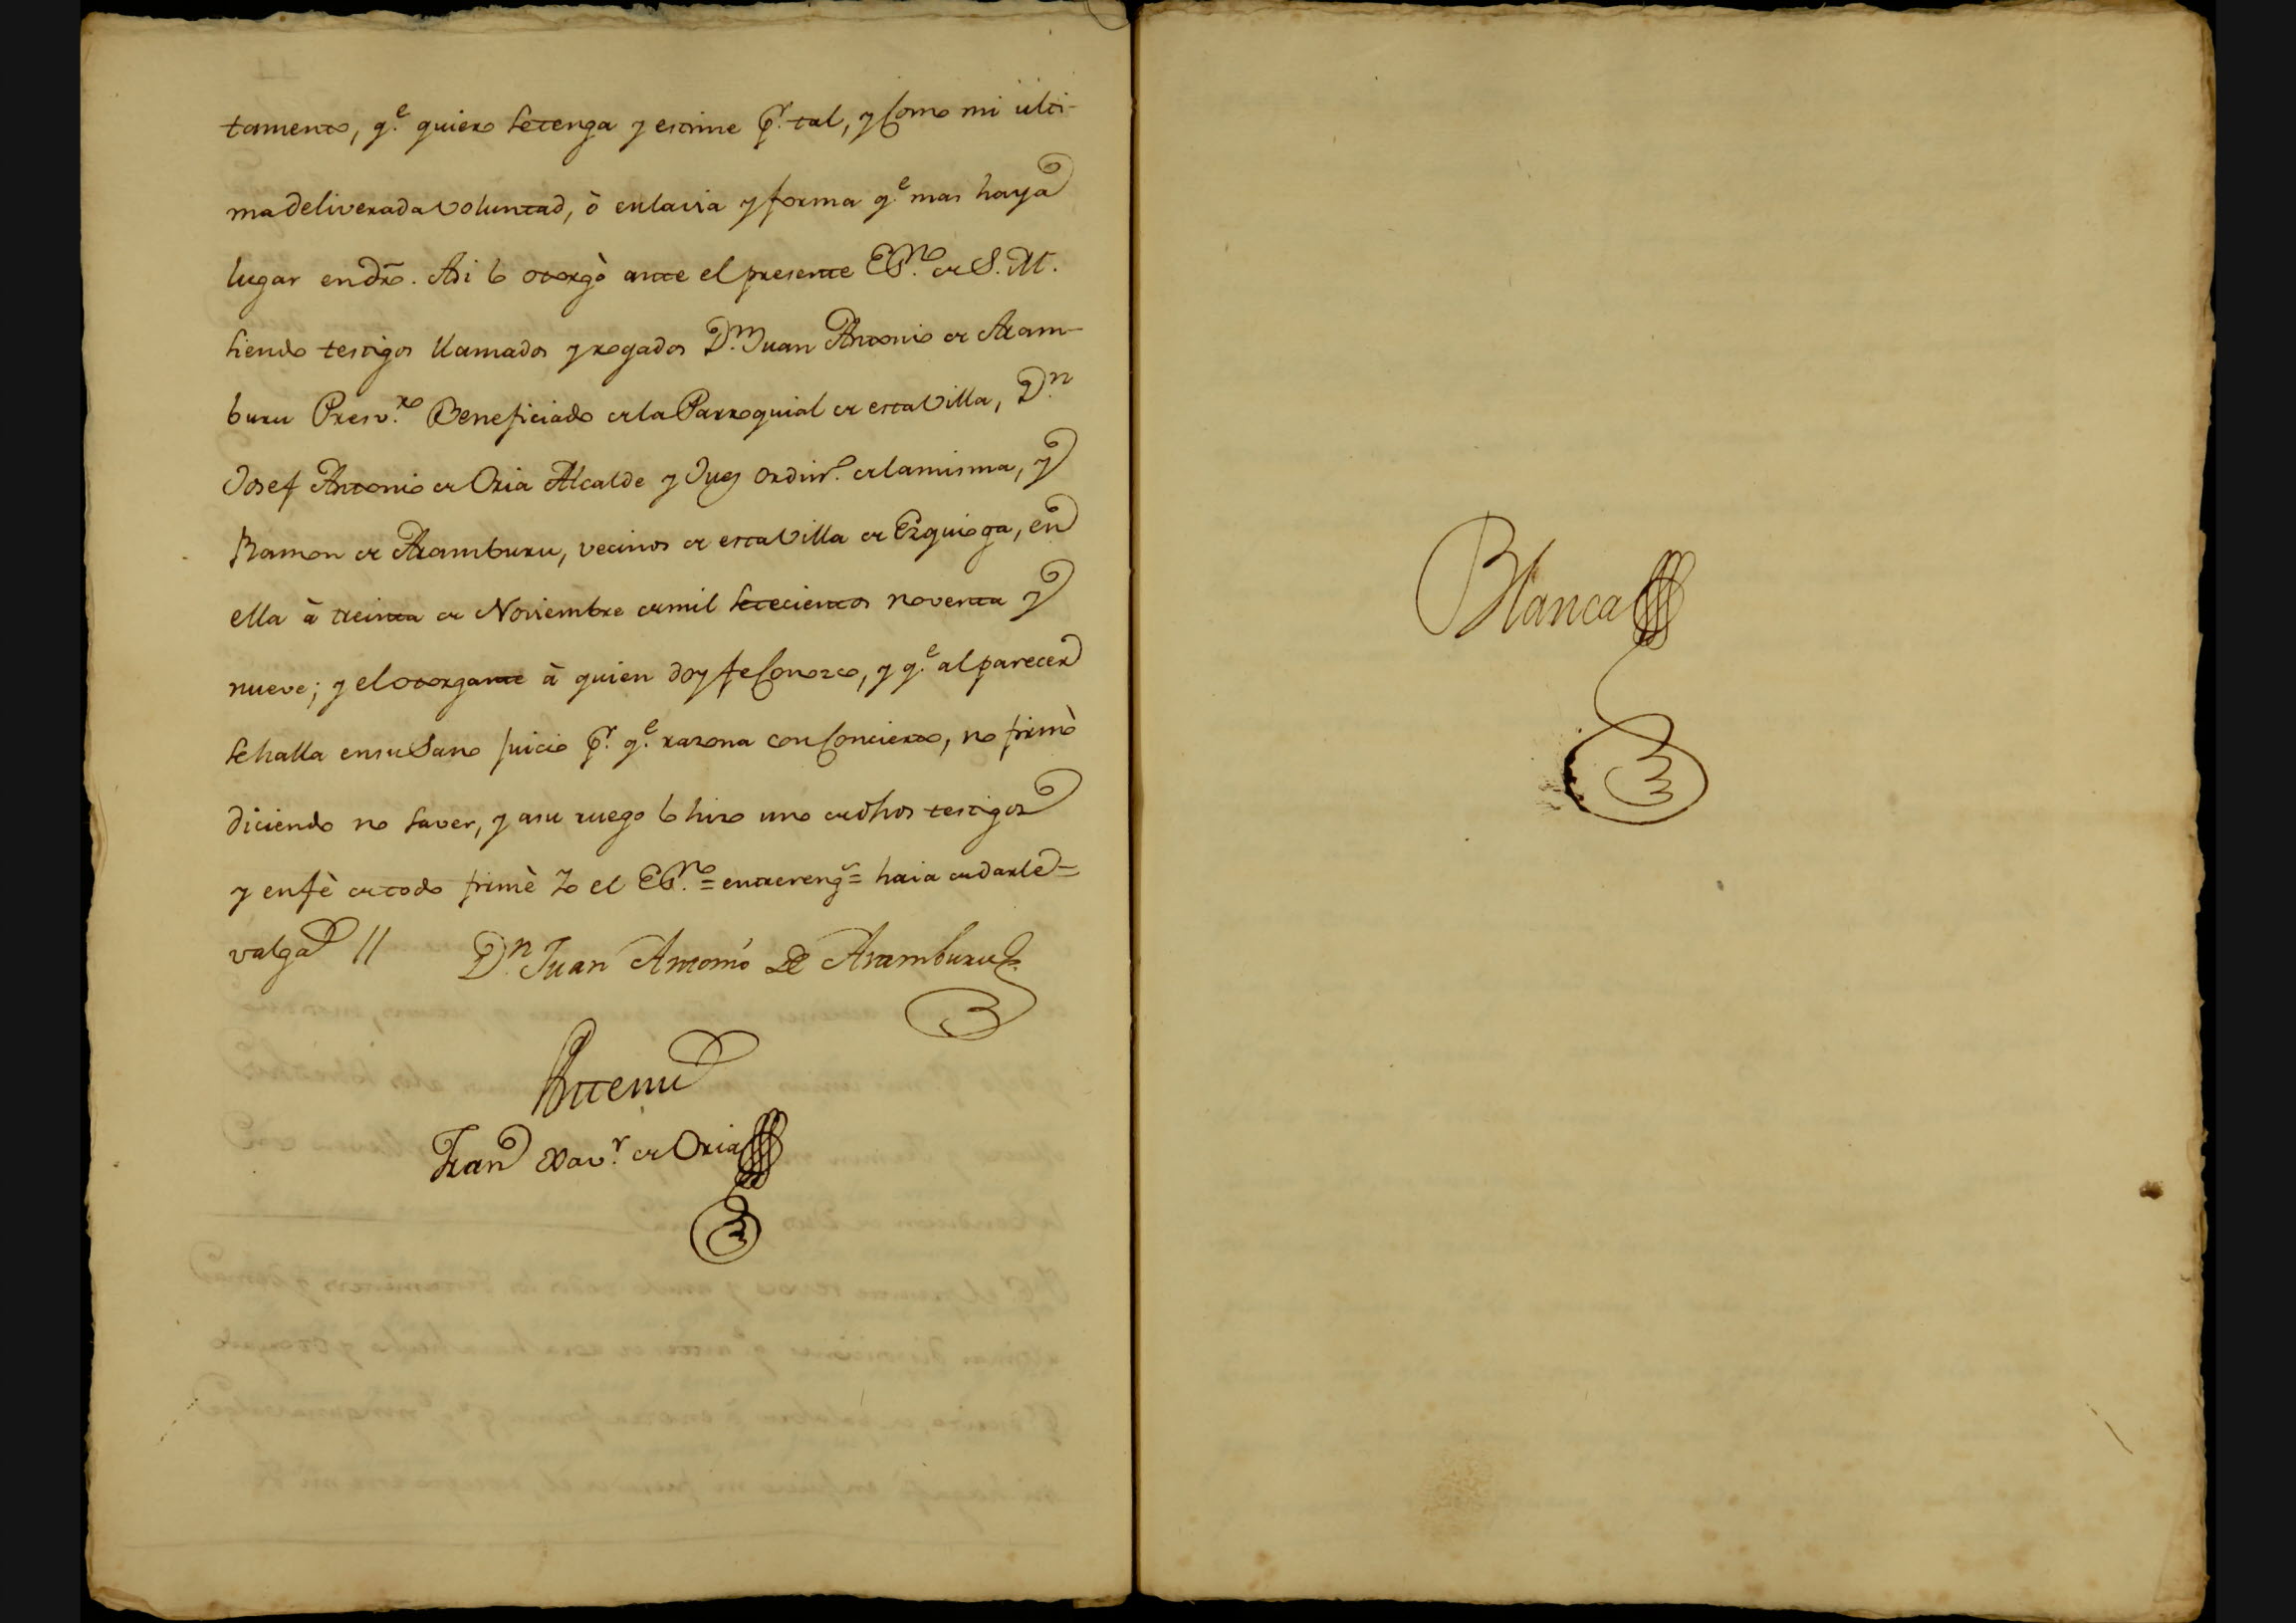 tamento, q.e quiero se tenga y estime p.r tal, y como mi ulti-
ma deliverada voluntad, ò en la via y forma q.e mas haya
lugar en dro. Asi lo otorgò ante el presente Es.no de S. M.
siendo testigos llamados y rogados D.n Juan Antonio de Aram-
buru Presv.ro Beneficiado de la Parroquial de esta Villa, D.n
Josef Antonio de Oria Alcalde y Juez ordin.o de la misma, y
Ramon de Aramburu, vecinos de esta Villa de Ezquioga, en
ella à treinta de Noviembre de mil setecientos noventa y
nueve; y el otorgante à quien doy fe conozco, y q.e al parecer
se halla en su sano juicio p.r q.e razona con concierto, no firmò
diciendo no saver, y a su ruego lo hizo uno de dhos testigos
y en fè de todo firmè Yo el Es.no = entrereng.s = havia de darle =
valga //
D.n Juan Antonio de Aramburu
Antemi
Fran.co Xav.r de Oria
Blanca